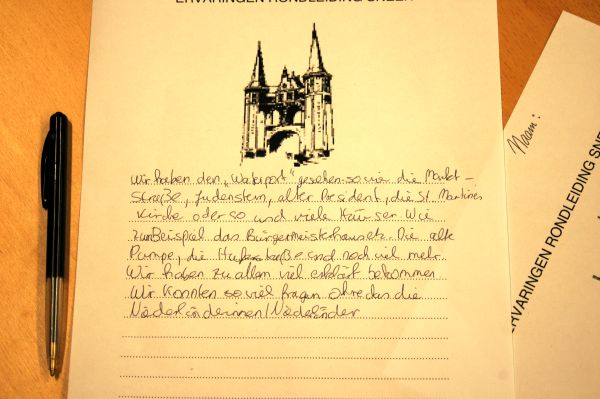 ERVARINGEN RONDLEIDING SNEEK
Wir haben den „Waterport" gesehen so wie die Markt-
straße, Judenstern, alter President, die St. Martines
Kirche oder so und viele Häuser. Wie
zum Beispiel das Bürgermeisterhaus etc. Die alte
Pumpe, die straße und noch viel mehr.
Wir haben zu allem viel erklärt bekommen
Wir konnten so viel fragen ohne das die
Niederländerinnen/Niederländer
Naam:
ERVARINGEN RONDLEIDING SNE